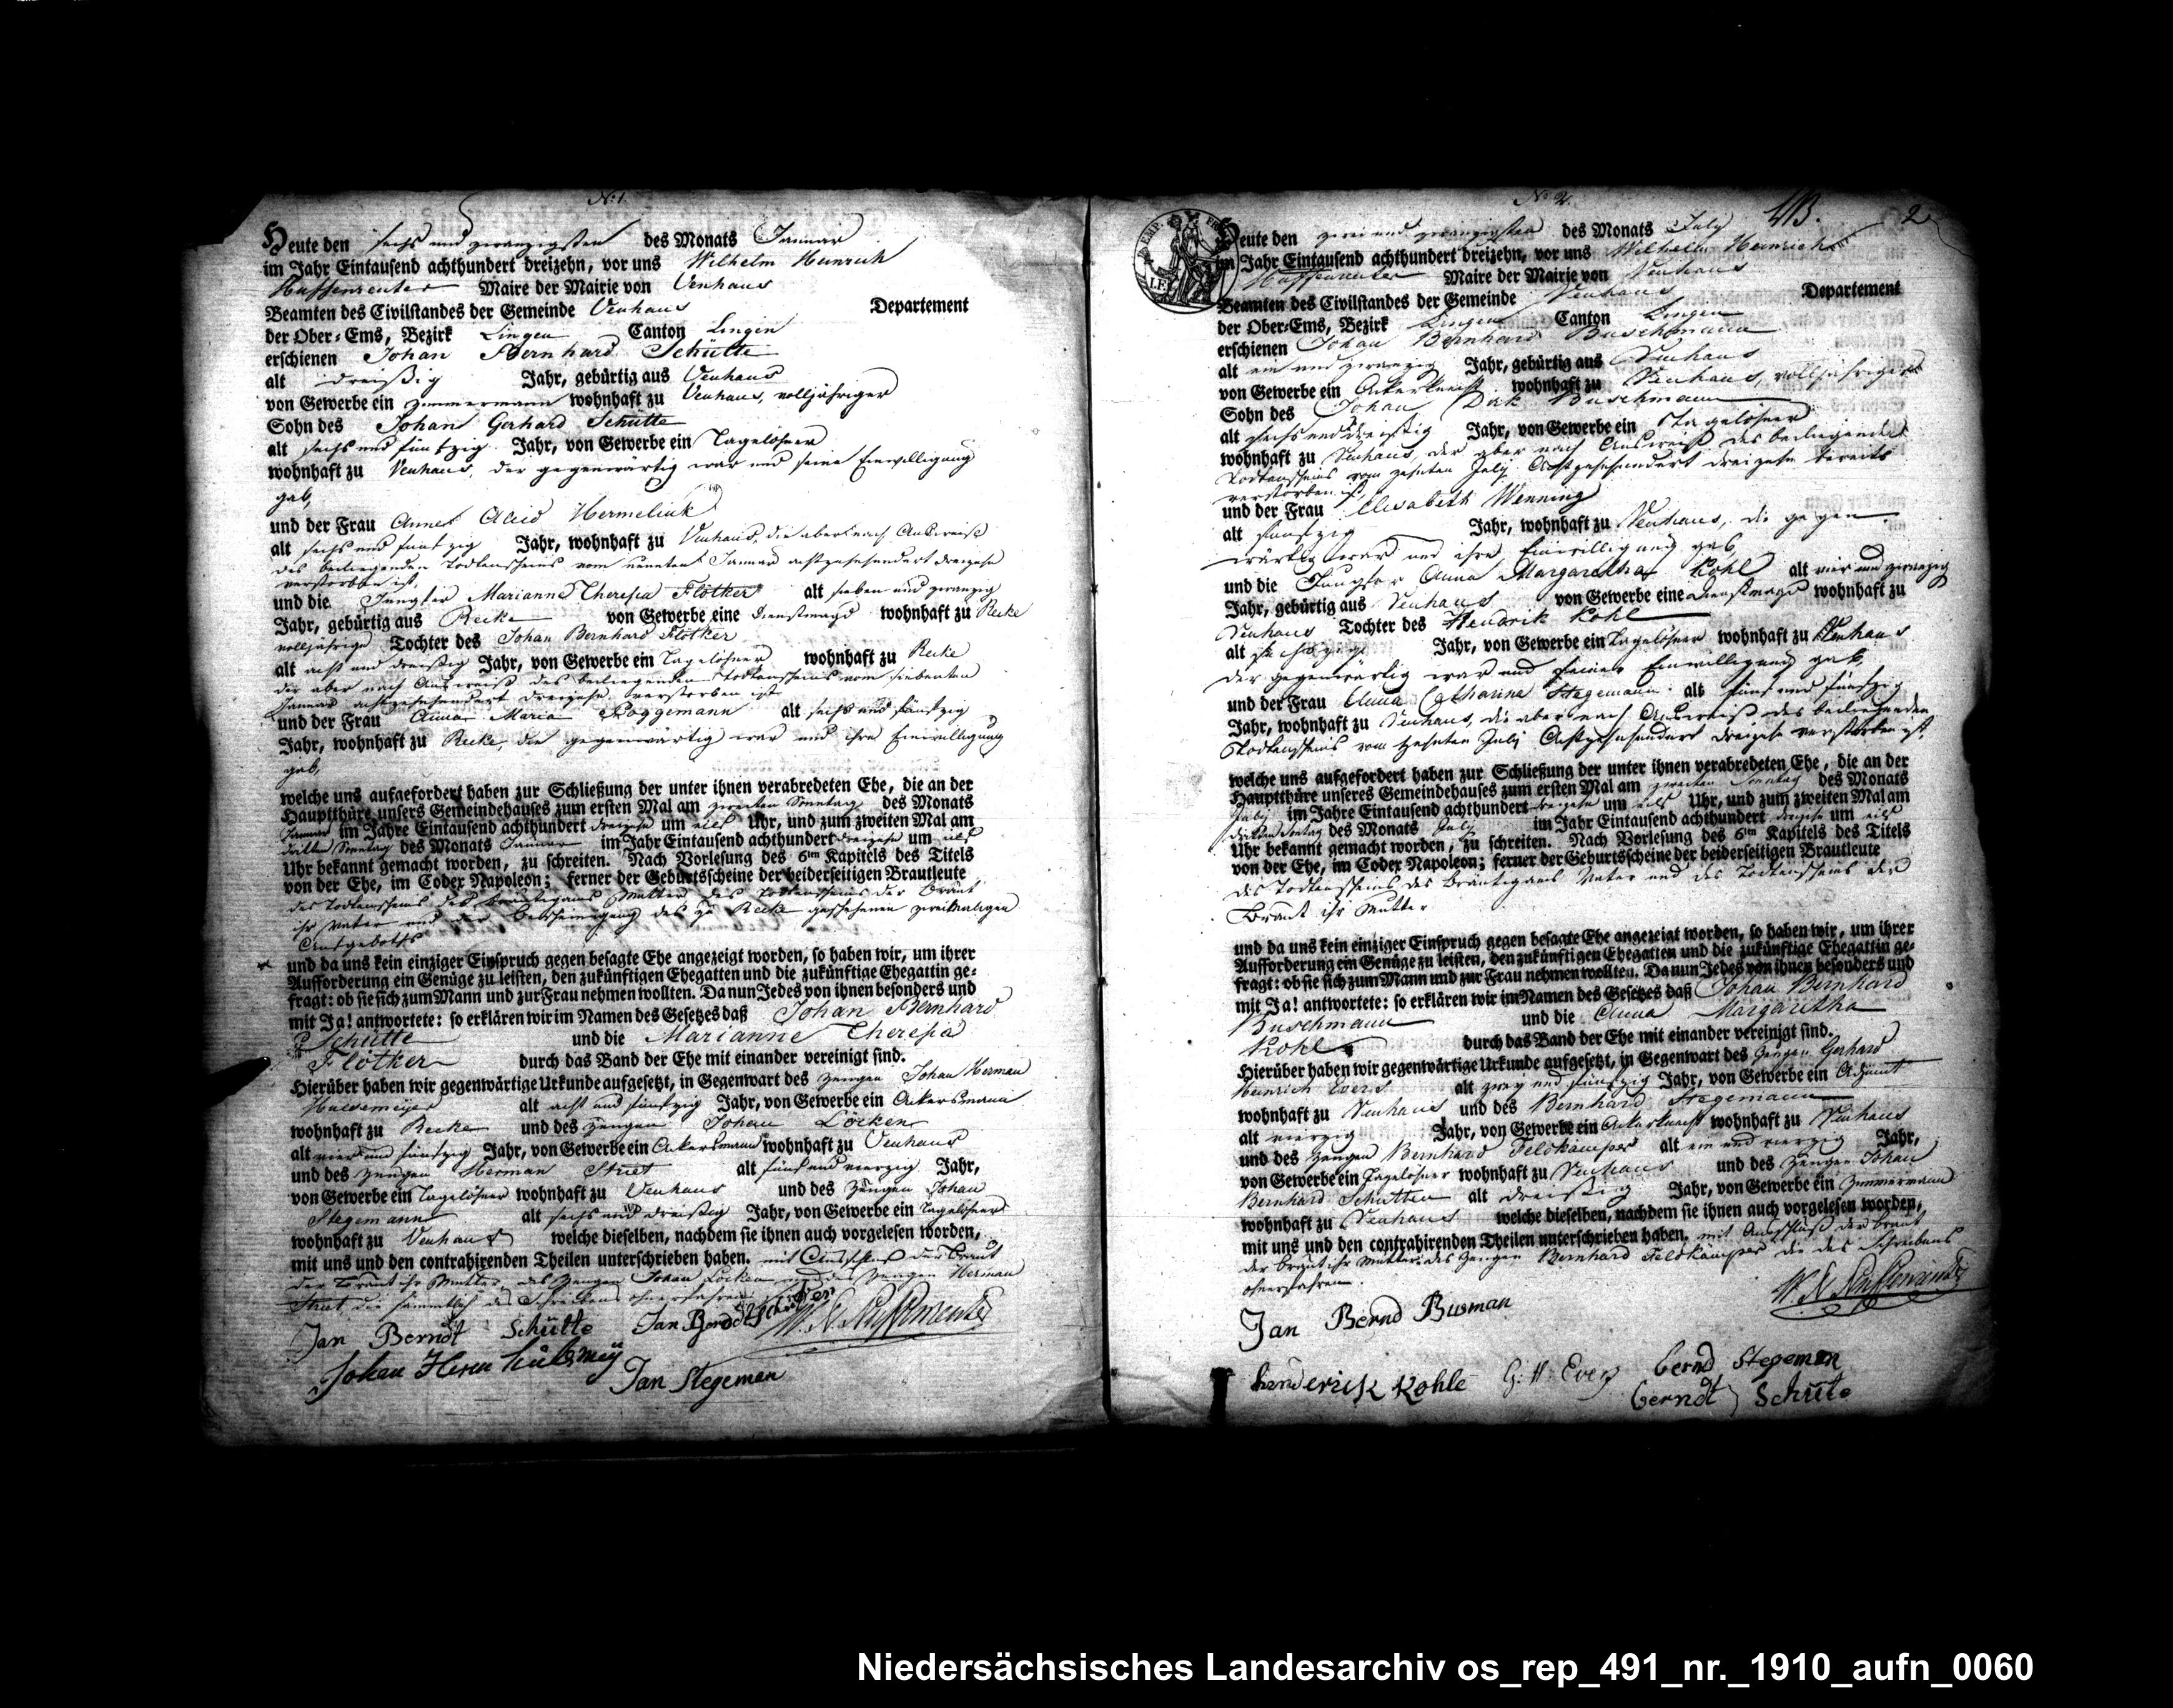 No 1.
Heute den sechs und zwanzigsten des Monats Januar
im Jahr Eintausend achthundert dreizehn, vor uns Wilhelm Heinrich
Maire der Mairie von Venhaus
Beamten des Civilstandes der Gemeinde Venhaus Departement
der Ober-Ems, Bezirk Lingen Canton Lingen
erschienen Johan Bernhard Schütte
alt dreißig Jahr, gebürtig aus Venhaus
von Gewerbe ein Zimmermann wohnhaft zu Venhaus, volljähriger
Sohn des Johan Gerhard Schütte
alt sechs und fünfzig Jahr, von Gewerbe ein Tagelöhner
wohnhaft zu Venhaus, der gegenwärtig war und seine Einwilligung
gab,
und der Frau Anna Aleid Hermelink
alt sechs und fünfzig Jahr, wohnhaft zu Venhaus, die aber nach Ausweise
des beiliegenden Todtenscheins vom neunten Januar achtzehnhundert dreizehn
verstorben ist,
und die Jungfer Marianne Theresia Flötker alt sieben und zwanzig
Jahr, gebürtig aus Recke von Gewerbe eine Dienstmagd wohnhaft zu Recke
volljährige Tochter des Johan Bernhard Flötker
alt acht und dreißig Jahr, von Gewerbe ein Tagelöhner wohnhaft zu Recke
der aber nach Ausweiß des beiliegenden Todtenscheins vom siebenten
Januar achtzehnhundert dreizehn verstorben ist
und der Frau Anna Maria Poggemann alt sechs und fünfzig
Jahr, wohnhaft zu Recke, die gegenwärtig war und ihre Einwilligung
gab,
welche uns aufgefordert haben zur Schließung der unter ihnen verabredeten Ehe, die an der
Hauptthüre unsers Gemeindehauses zum ersten Mal am zweiten Sonntag des Monats
Januar im Jahre Eintausend achthundert dreizehn um eilf Uhr, und zum zweiten Mal am
dritten Sonntag des Monats Januar im Jahr Eintausend achthundert dreizehn um eilf
Uhr bekannt gemacht worden, zu schreiten. Nach Vorlesung des 6ten Kapitels des Titels
von der Ehe, im Codex Napoleon; ferner der Geburtsscheine der beiderseitigen Brautleute
des Todtenscheins des Bräutigams Mutter des Todtenscheins der Braut
ihr Vater und der Bescheinigung des zu Recke geschehenen zweimaligen
Aufgeboths
und da uns kein einziger Einspruch gegen besagte Ehe angezeigt worden, so haben wir, um ihrer
Aufforderung ein Genüge zu leisten, den zukünftigen Ehegatten und die zukünftige Ehegattin ge-
fragt: ob sie sich zum Mann und zur Frau nehmen wollten. Da nun Jedes von ihnen besonders und
mit Ja! antwortete: so erklären wir im Namen des Gesetzes daß Johan Bernhard
Schütte und die Marianne Theresia
Flötker durch das Band der Ehe mit einander vereinigt sind.
Hierüber haben wir gegenwärtige Urkunde aufgesetzt, in Gegenwart des Zeugen Johan Herman
alt acht und fünfzig Jahr, von Gewerbe ein Ackersmann
wohnhaft zu Recke und des Zeugen Johan Löcken
alt vier und fünfzig Jahr, von Gewerbe ein Ackersmann wohnhaft zu Venhaus
und des Zeugen Herman Striet alt fünf und vierzig Jahr,
von Gewerbe ein Tagelöhner wohnhaft zu Venhaus und des Zeugen Johan
Stegemann alt sechs und dreißig Jahr, von Gewerbe ein Tagelöhner
wohnhaft zu Venhaus welche dieselben, nachdem sie ihnen auch vorgelesen worden,
mit uns und den contrahirenden Theilen unterschrieben haben. mit Ausschluß der Braut
der Braut ihr Mutter, des Zeugen Johan Löcken und des Zeugen Herman
Striet, die sämmtlich des Schreibens unerfahren
Jan Berndt Schütte Jan Berndt
Johan Herm
Jan Stegeman
No 2.
2
Heute den zwei und zwanzigsten des Monats July
im Jahr Eintausend achthundert dreizehn, vor uns Wilhelm Heinrich
Maire der Mairie von Venhaus
Beamten des Civilstandes der Gemeinde Venhaus Departement
der Ober-Ems, Bezirk Lingen Canton Lingen
erschienen Johan Bernhard Buschmann
alt ein und zwanzig Jahr, gebürtig aus Venhaus
von Gewerbe ein Ackerknecht wohnhaft zu Venhaus, volljähriger
Sohn des Johan Dirk Buschmann
alt sechs und dreißig Jahr, von Gewerbe ein Tagelöhner
wohnhaft zu Venhaus, der aber nach Ausweiß des beiliegenden
Todtenscheins vom zehnten July Achtzehnhundert dreizehn bereits
verstorben ist,
und der Frau Elisabeth Wenning
alt fünfzig Jahr, wohnhaft zu Venhaus, die gegen-
wärtig war und ihre Einwilligung gab,
und die Jungfer Anna Margaretha Kohl alt vier und zwanzig
Jahr, gebürtig aus Venhaus von Gewerbe eine Dienstmagd wohnhaft zu
Venhaus Tochter des Hendrik Kohl
alt Jahr, von Gewerbe ein Tagelöhner wohnhaft zu Venhaus
der gegenwärtig war und seine Einwilligung gab,
und der Frau Anna Catharina Stegemann alt fünf und fünfzig
Jahr, wohnhaft zu Venhaus, die aber nach Ausweiß des beiliegenden
Todtenscheins vom zehnten July Achtzehnhundert dreizehn verstorben ist.
welche uns aufgefordert haben zur Schließung der unter ihnen verabredeten Ehe, die an der
Hauptthüre unseres Gemeindehauses zum ersten Mal am zweiten Sonntag des Monats
July im Jahre Eintausend achthundert dreizehn um eilf Uhr, und zum zweiten Mal am
dritten Sontag des Monats July im Jahr Eintausend achthundert dreizehn um eilf
Uhr bekannt gemacht worden, zu schreiten. Nach Vorlesung des 6ten Kapitels des Titels
von der Ehe, im Codex Napoleon; ferner der Geburtsscheine der beiderseitigen Brautleute
des Todtenscheins des Bräutigams Vater und des Todtenscheins der
Braut ihr Mutter
und da uns kein einziger Einspruch gegen besagte Ehe angezeigt worden, so haben wir, um ihrer
Aufforderung ein Genüge zu leisten, den zukünftigen Ehegatten und die zukünftige Ehegattin ge-
fragt: ob sie sich zum Mann und zur Frau nehmen wollten. Da nun Jedes von ihnen besonders und
mit Ja! antwortete: so erklären wir im Namen des Gesetzes daß Johan Bernhard
Buschmann und die Anna Margaretha
Kohl durch das Band der Ehe mit einander vereinigt sind.
Hierüber haben wir gegenwärtige Urkunde aufgesetzt, in Gegenwart des Zeugen Gerhard
Heinrich Evers alt zwey und fünfzig Jahr, von Gewerbe ein Adjunct
wohnhaft zu Venhaus und des Bernhard Stegemann
alt vierzig Jahr, von Gewerbe ein Ackerknecht wohnhaft zu Venhaus
und des Zeugen Bernhard Feldkämper alt ein und vierzig Jahr,
von Gewerbe ein Tagelöhner wohnhaft zu Venhaus und des Zeugen Johan
Bernhard Schütten alt dreißig Jahr, von Gewerbe ein Zimmermann
wohnhaft zu Venhaus welche dieselben, nachdem sie ihnen auch vorgelesen worden,
mit uns und den contrahirenden Theilen unterschrieben haben. mit Ausschluß der Braut
der Bräut. ihr Mutter des Zeugen Bernhard Feldkämper die des Schreibens
unerfahren.
Jan Bernd Busman
henderick Kohle G: H: Evers bernd Stegeman
berndt Schüte
Niedersächsisches Landesarchiv os_rep_491_nr._1910_aufn_0060